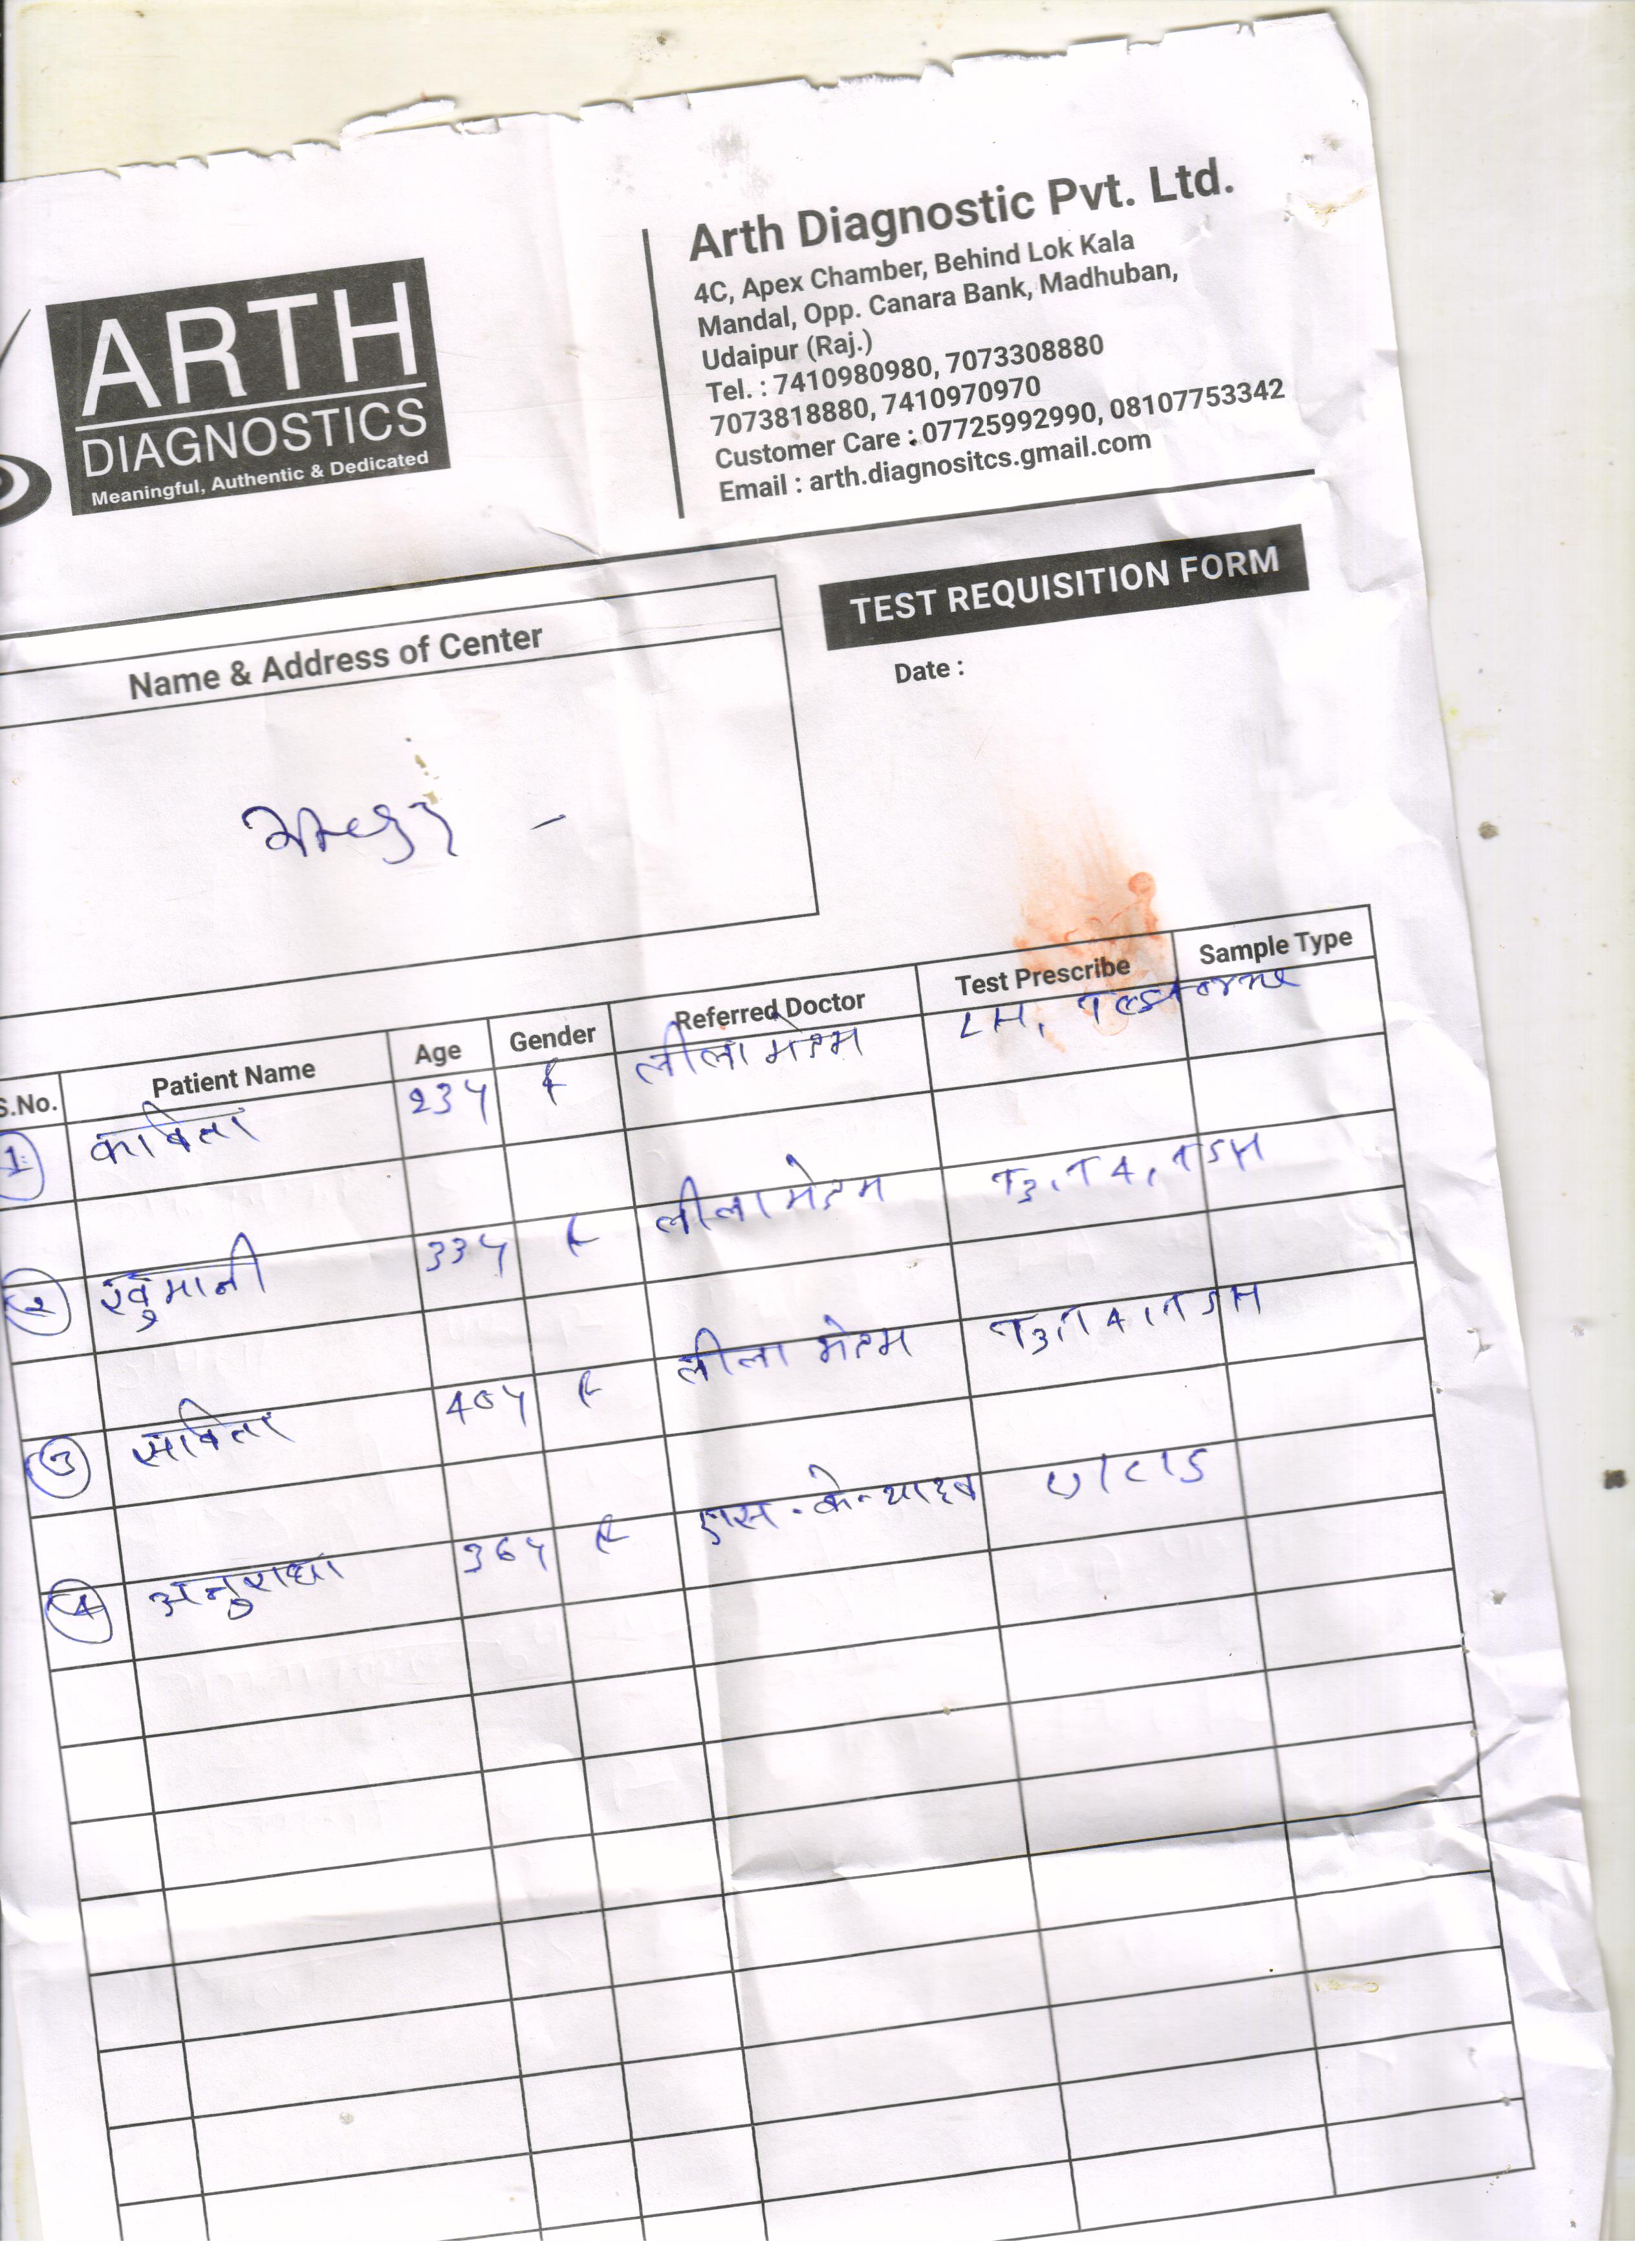 ARTH
DIAGNOSTICS
Meaningful, Authentic & Dedicated
Arth Diagnostic Pvt. Ltd.
4C, Apex Chamber, Behind Lok Kala
Mandal, Opp. Canara Bank, Madhuban,
Udaipur (Raj.)
Tel. : 7410980980, 7073308880
7073818880, 7410970970
Customer Care : 07725992990, 08107753342
Email : arth.diagnositcs.gmail.com
TEST REQUISITION FORM
Name & Address of Center
Date :
S.No. Patient Name Age Gender Referred Doctor Test Prescribe Sample Type
1 कविता 23y F लीला मेडम LH,
2 खुमानी 33y F लीला मेडम T3, T4, TSH
3 सविता 40y F लीला मेडम T3, T4, TSH
4 अनुराधा 36y F एस. के. यादव